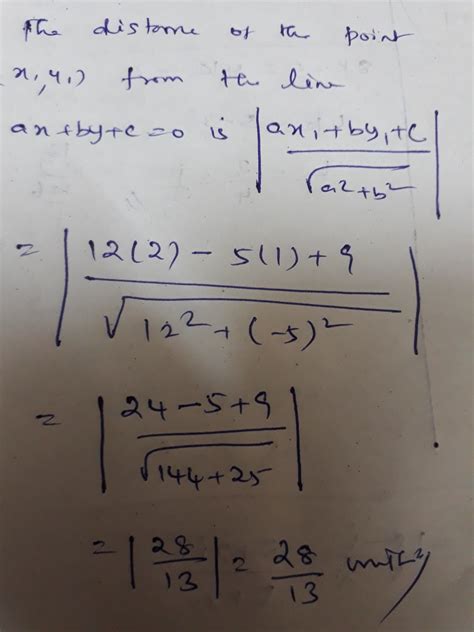 The distance of the point
x₁, y₁) from the line
ax+by+c=0 is |ax₁+by₁+c / √a²+b²|
= |12(2) - 5(1) + 9 / √12² + (-5)²|
= |24-5+9 / √144+25|
= |28/13| = 28/13 units